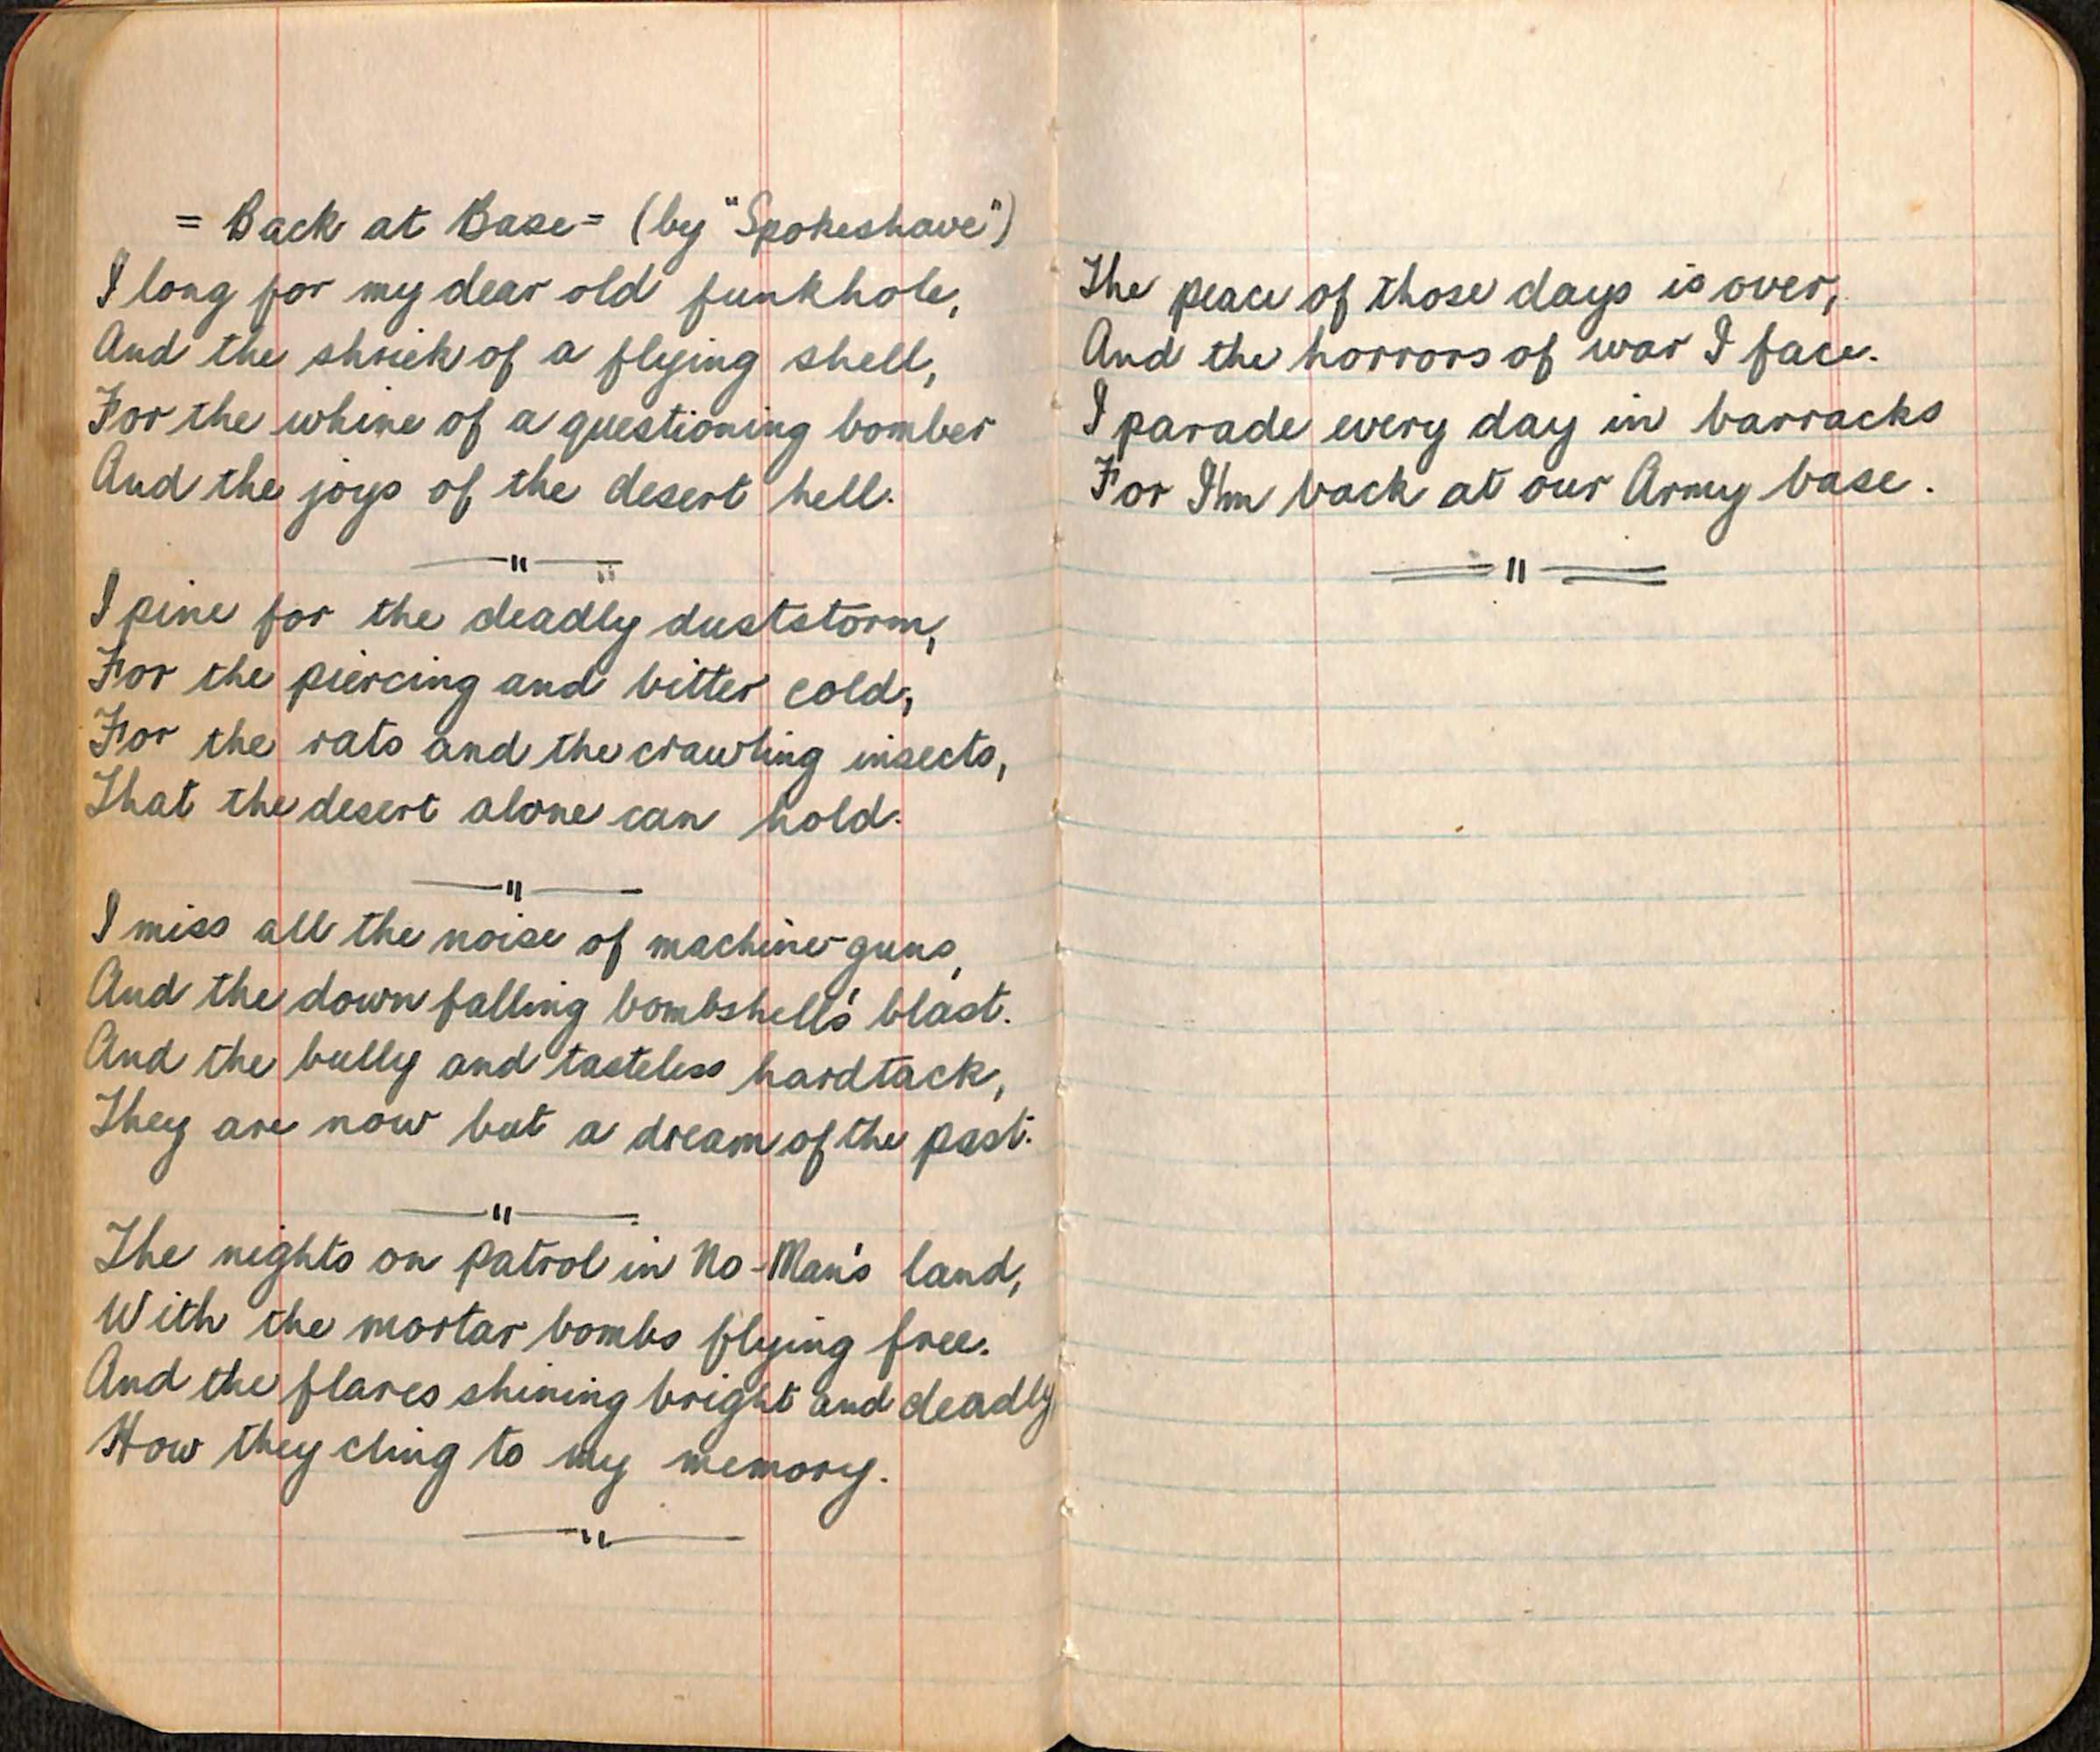 = Back at Base = (by "Spokeshave")
I long for my dear old funkhole,
And the shriek of a flying shell,
For the whine of a questioning bomber
And the joys of the desert hell.
I pine for the deadly duststorm,
For the piercing and bitter cold,
For the rats and the crawling insects,
That the desert alone can hold.
I miss all the noise of machine-guns,
And the down falling bombshell's blast.
And the bully and tasteless hardtack,
They are now but a dream of the past.
The nights on patrol in No-Man's land,
With the mortar bombs flying free.
And the flares shining bright and deadly,
How they cling to my memory.
The peace of those days is over,
And the horrors of war I face.
I parade every day in barracks
For I'm back at our Army base.